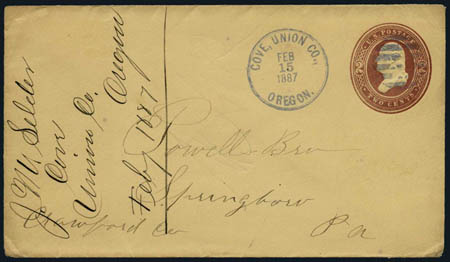 J. M. Selder
Cove
Union Co.
Oregon
Feby 1887
COVE, UNION CO.,
FEB
15
1887
OREGON.
U.S. POSTAGE
TWO CENTS
Powell Bro
Springboro
Crawford Co
Pa